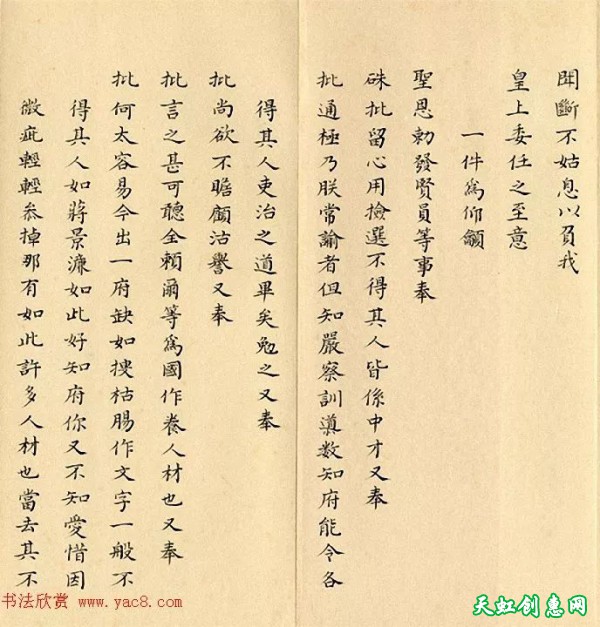 聞斷不姑息以負我
皇上委任之至意
一件為仰籲
聖恩勅發賢員等事奉
硃批留心用撿選不得其人皆係中才又奉
批通極乃朕常諭者但知嚴察訓導数知府能令各
得其人吏治之道畢矣勉之又奉
批尚欲不瞻顧沽譽又奉
批言之甚可聽全頼爾等爲國作養人材也又奉
批何太容易今出一府缺如搜枯腸作文字一般不
得其人如蔣景濂如此好知府你又不知愛惜因
微疵輕輕叅掉那有如此許多人材也當去其不
书法欣赏 www.yac8.com
天虹创惠网